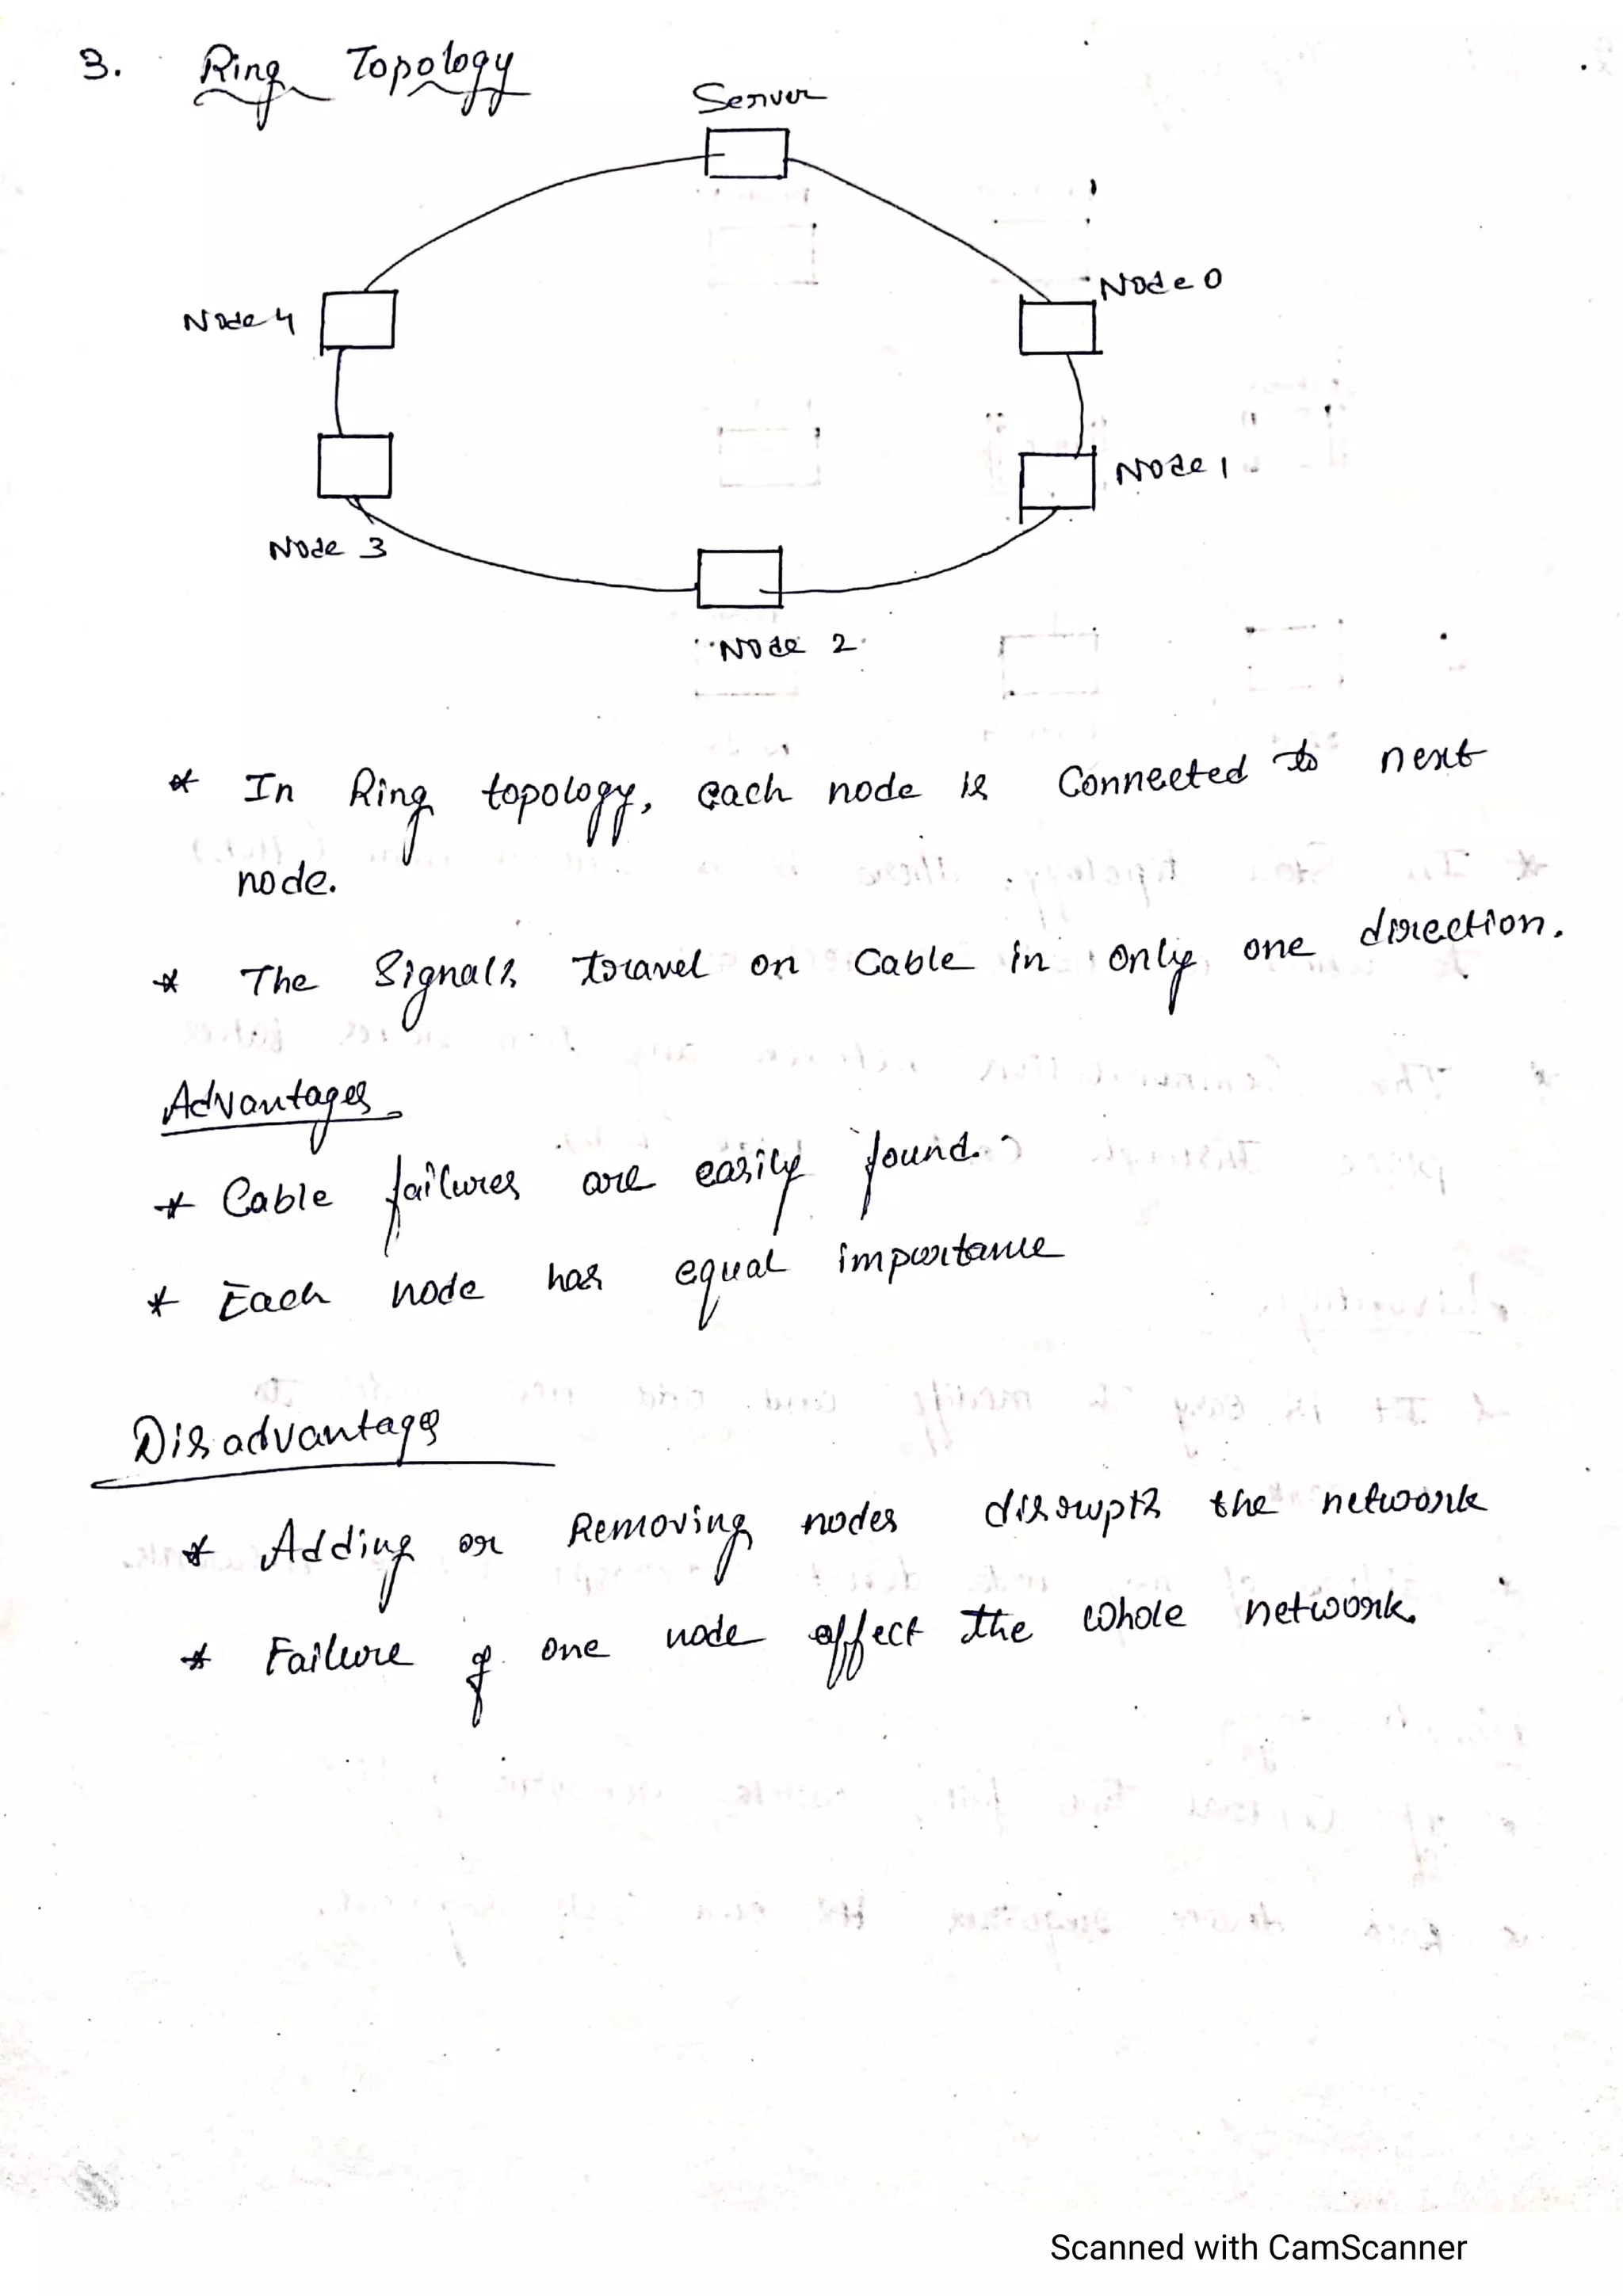 3. Ring Topology
Server
Node 0
Node 4
Node 1
Node 3
Node 2
* In Ring topology, each node is Connected to next
node.
* The Signals travel on Cable in only one direction.
Advantages
* Cable failures are easily found.
* Each node has equal importance
Disadvantages
* Adding or Removing nodes disrupts the network
* Failure of one node affect the whole network.
Scanned with CamScanner